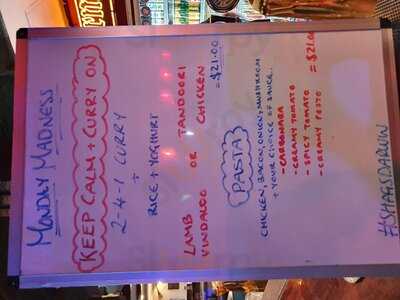 MONDAY MADNESS
KEEP CALM + CURRY ON
2-4-1 CURRY
+
RICE + YOGHURT
LAMB OR TANDOORI
VINDALOO CHICKEN
= $21.00
PASTA
CHICKEN, BACON, ONION, MUSHROOM
+ YOUR CHOICE OF SAUCE..
- CARBONARA
- CREAMY TOMATO
- SPICY TOMATO
- CREAMY PESTO
= $21.00
#SHAGSDARWIN